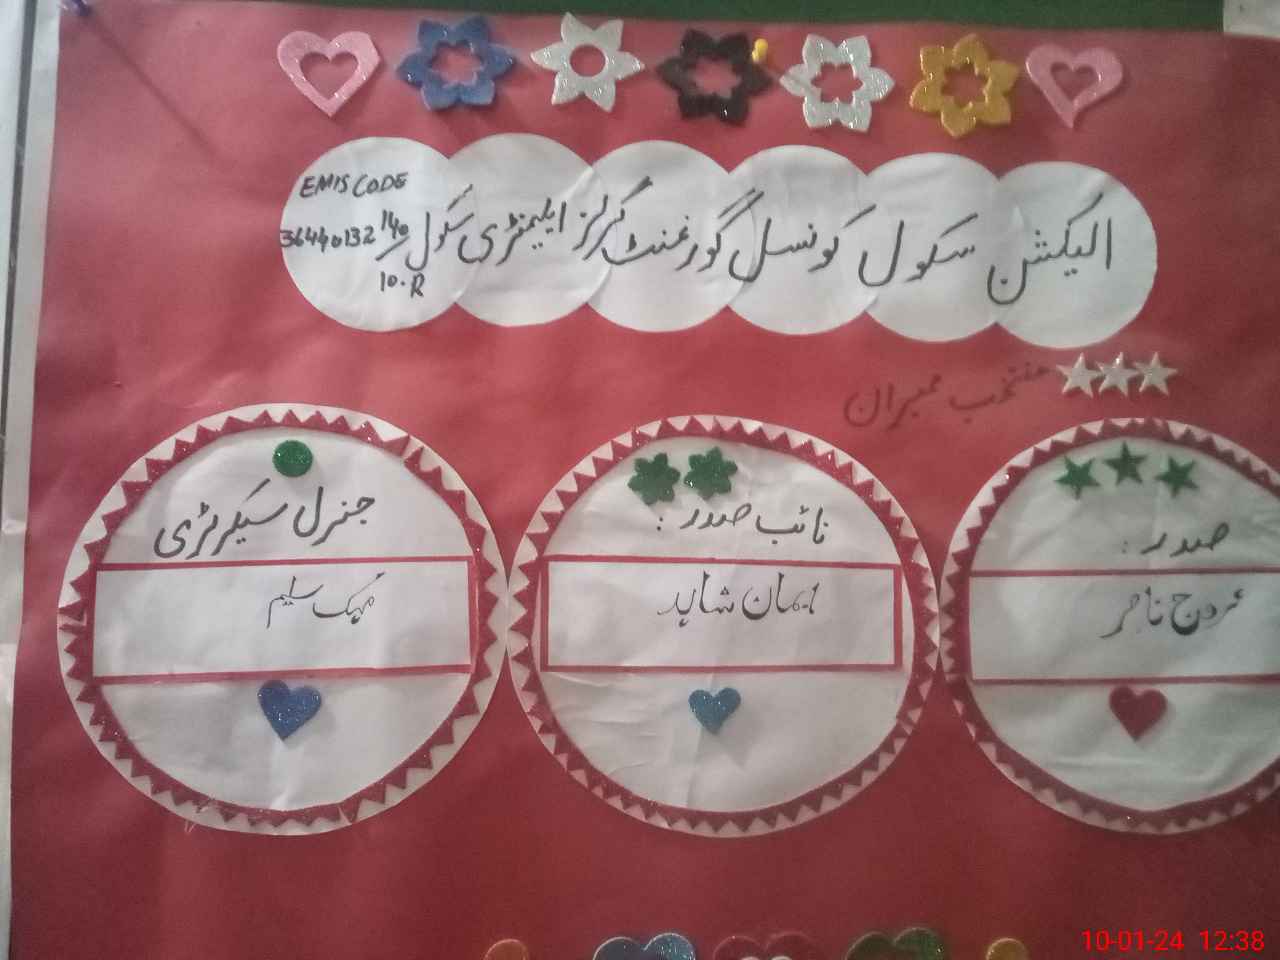 الیکشن سکول کونسل گورنمنٹ گرلز ایلیمنٹری سکول 140/10.R
EMIS CODE
36440132
منتخب ممبران
صدر :
عروج ناصر
نائب صدر :
ایمان شاہد
جنرل سیکرٹری
مہک سلیم
10-01-24 12:38